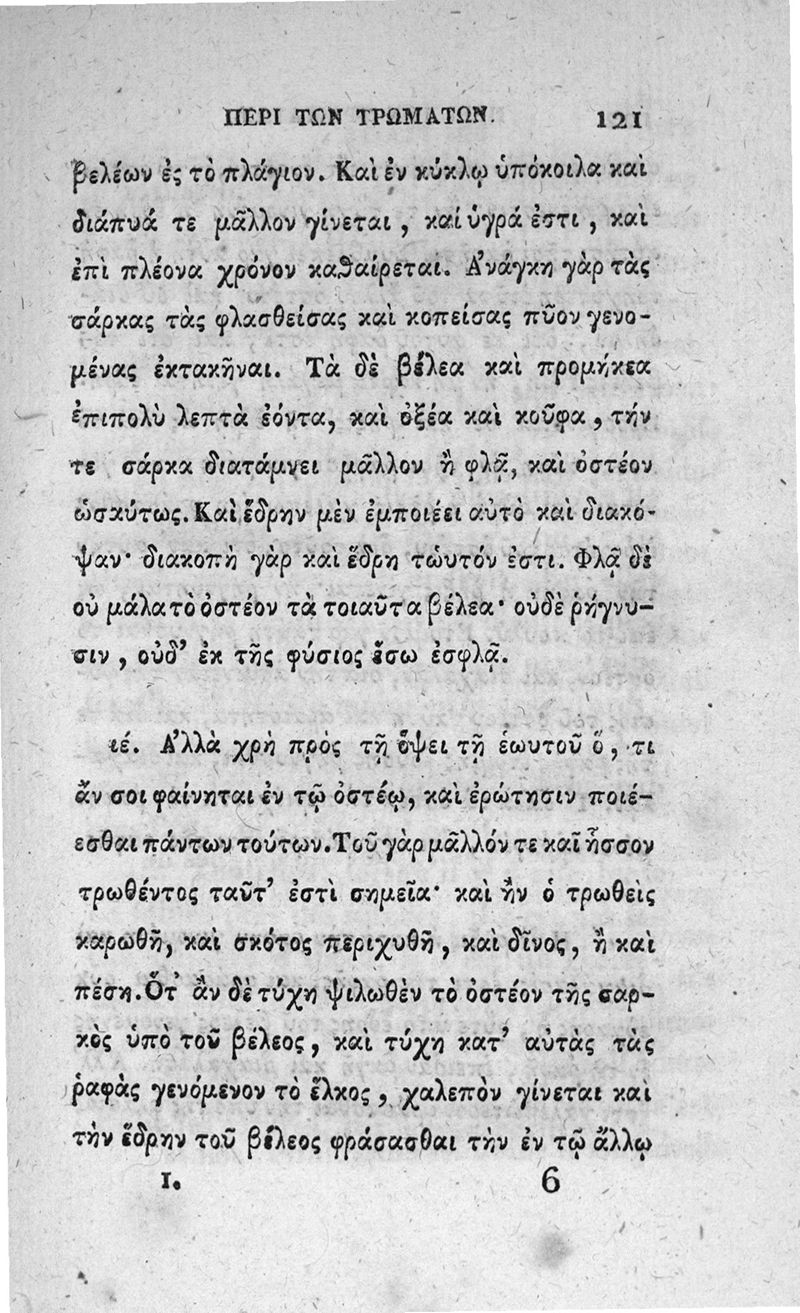 ΠΕΡΙ ΤΩΝ ΤΡΩΜΑΤΩΝ. 121
βελέων ἐς τὸ πλάγιον. Καὶ ἐν κύκλῳ ὑπόκοιλα καὶ
διάπυά τε μᾶλλον γίνεται, καί ὑγρά ἐστι, καὶ
ἐπὶ πλέονα χρόνον καθαίρεται. Ἀνάγκη γὰρ τὰς
σάρκας τὰς φλασθείσας καὶ κοπείσας πῦον γενο-
μένας ἐκτακῆναι. Τὰ δὲ βέλεα καὶ προμήκεα
ἐπιπολὺ λεπτὰ ἐόντα, καὶ ὀξέα καὶ κοῦφα, τήν
τε σάρκα διατάμνει μᾶλλον ἢ φλᾷ, καὶ ὀστέον
ὡσαύτως. Καὶ ἕδρην μὲν ἐμποιέει αὐτὸ καὶ διακό-
ψαν· διακοπὴ γὰρ καὶ ἕδρη τὠυτόν ἐστι. Φλᾷ δὲ
οὐ μάλα τὸ ὀστέον τὰ τοιαῦτα βέλεα· οὐδὲ ῥήγνυ-
σιν, οὐδ’ ἐκ τῆς φύσιος ἔσω ἐσφλᾷ.
ιέ. Ἀλλὰ χρὴ πρὸς τῇ ὄψει τῇ ἑωυτοῦ ὅ, τι
ἄν σοι φαίνηται ἐν τῷ ὀστέῳ, καὶ ἐρώτησιν ποιέ-
εσθαι πάντων τούτων. Τοῦ γὰρ μᾶλλόν τε καῖ ἧσσον
τρωθέντος ταῦτ’ ἐστὶ σημεῖα· καὶ ἢν ὁ τρωθεὶς
καρωθῇ, καὶ σκότος περιχυθῇ, καὶ δῖνος, ἢ καὶ
πέσῃ. Ὅτ’ ἂν δὲ τύχῃ ψιλωθὲν τὸ ὀστέον τῆς σαρ-
κὸς ὑπὸ τοῦ βέλεος, καὶ τύχῃ κατ’ αὐτὰς τὰς
ῥαφὰς γενόμενον τὸ ἕλκος, χαλεπὸν γίνεται καὶ
τὴν ἕδρην τοῦ βέλεος φράσασθαι τὴν ἐν τῷ ἄλλῳ
I. 6